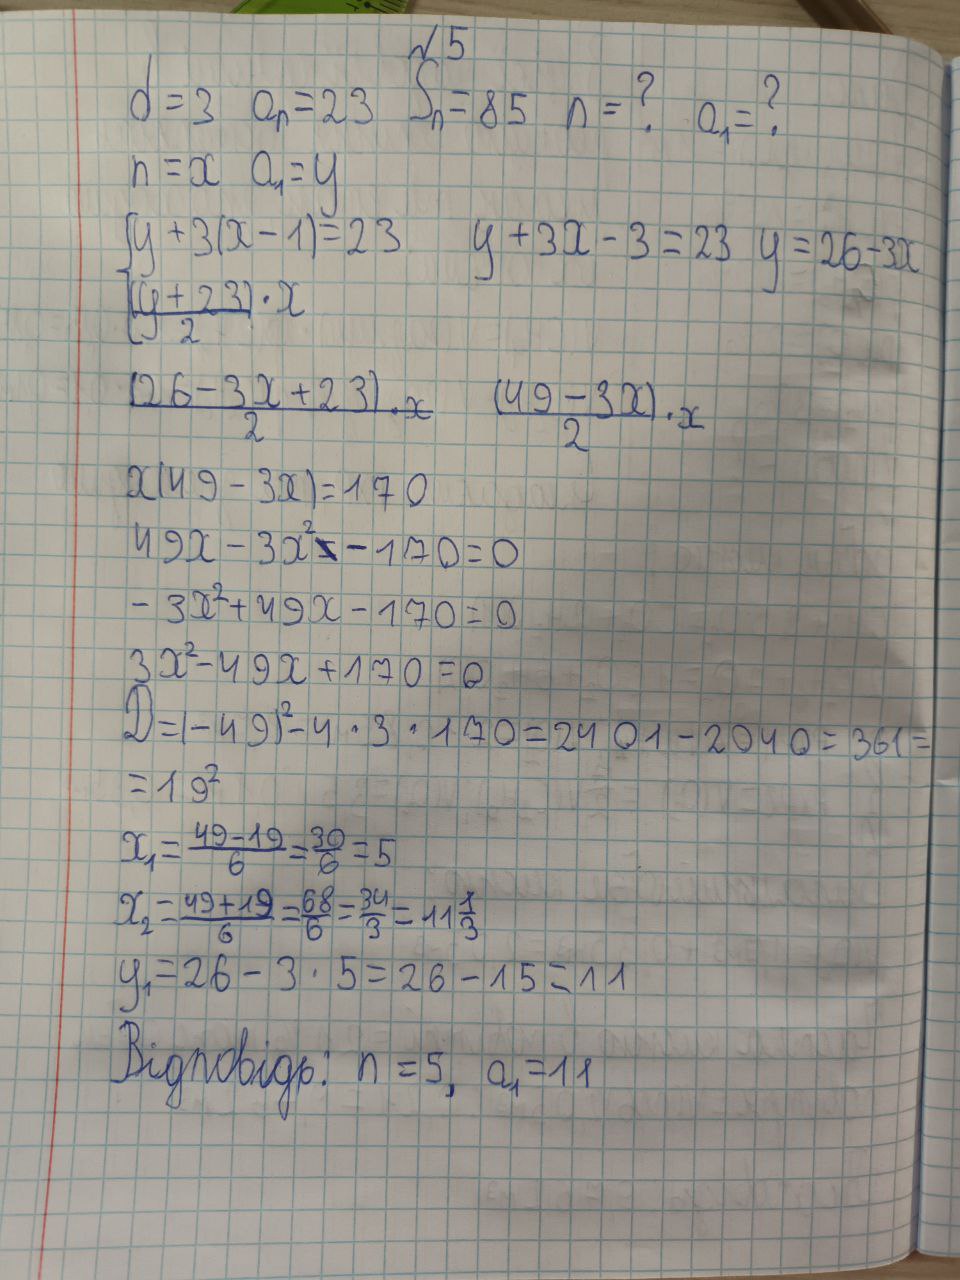 √5
d = 3 aₙ = 23 Sₙ = 85 n = ? a₁ = ?
n = x a₁ = y
{y + 3(x - 1) = 23 y + 3x - 3 = 23 y = 26 - 3x
{(y + 23)/2 · x
(26 - 3x + 23)/2 · x (49 - 3x)/2 · x
x(49 - 3x) = 170
49x - 3x² - 170 = 0
- 3x² + 49x - 170 = 0
3x² - 49x + 170 = 0
D = (-49)² - 4 · 3 · 170 = 2401 - 2040 = 361 =
= 19²
x₁ = (49 - 19)/6 = 30/6 = 5
x₂ = (49 + 19)/6 = 68/6 = 34/3 = 11 1/3
y₁ = 26 - 3 · 5 = 26 - 15 = 11
Відповідь: n = 5, a₁ = 11